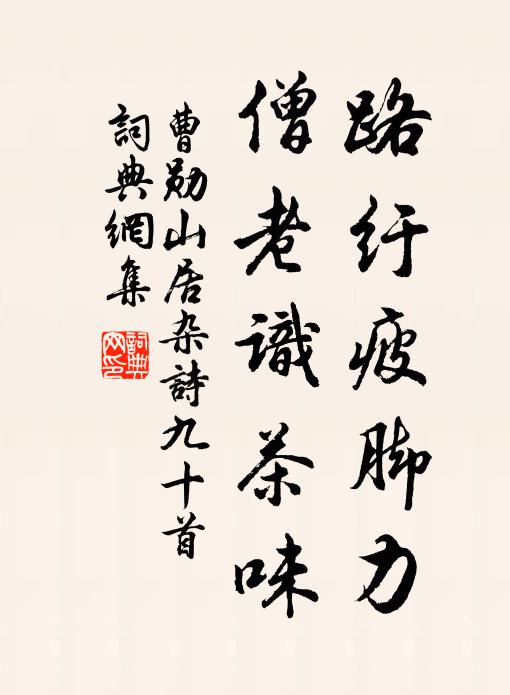 路纡疲脚力
僧老識茶味
曹勛山居杂詩九十首
詞典網集
詞典
网印